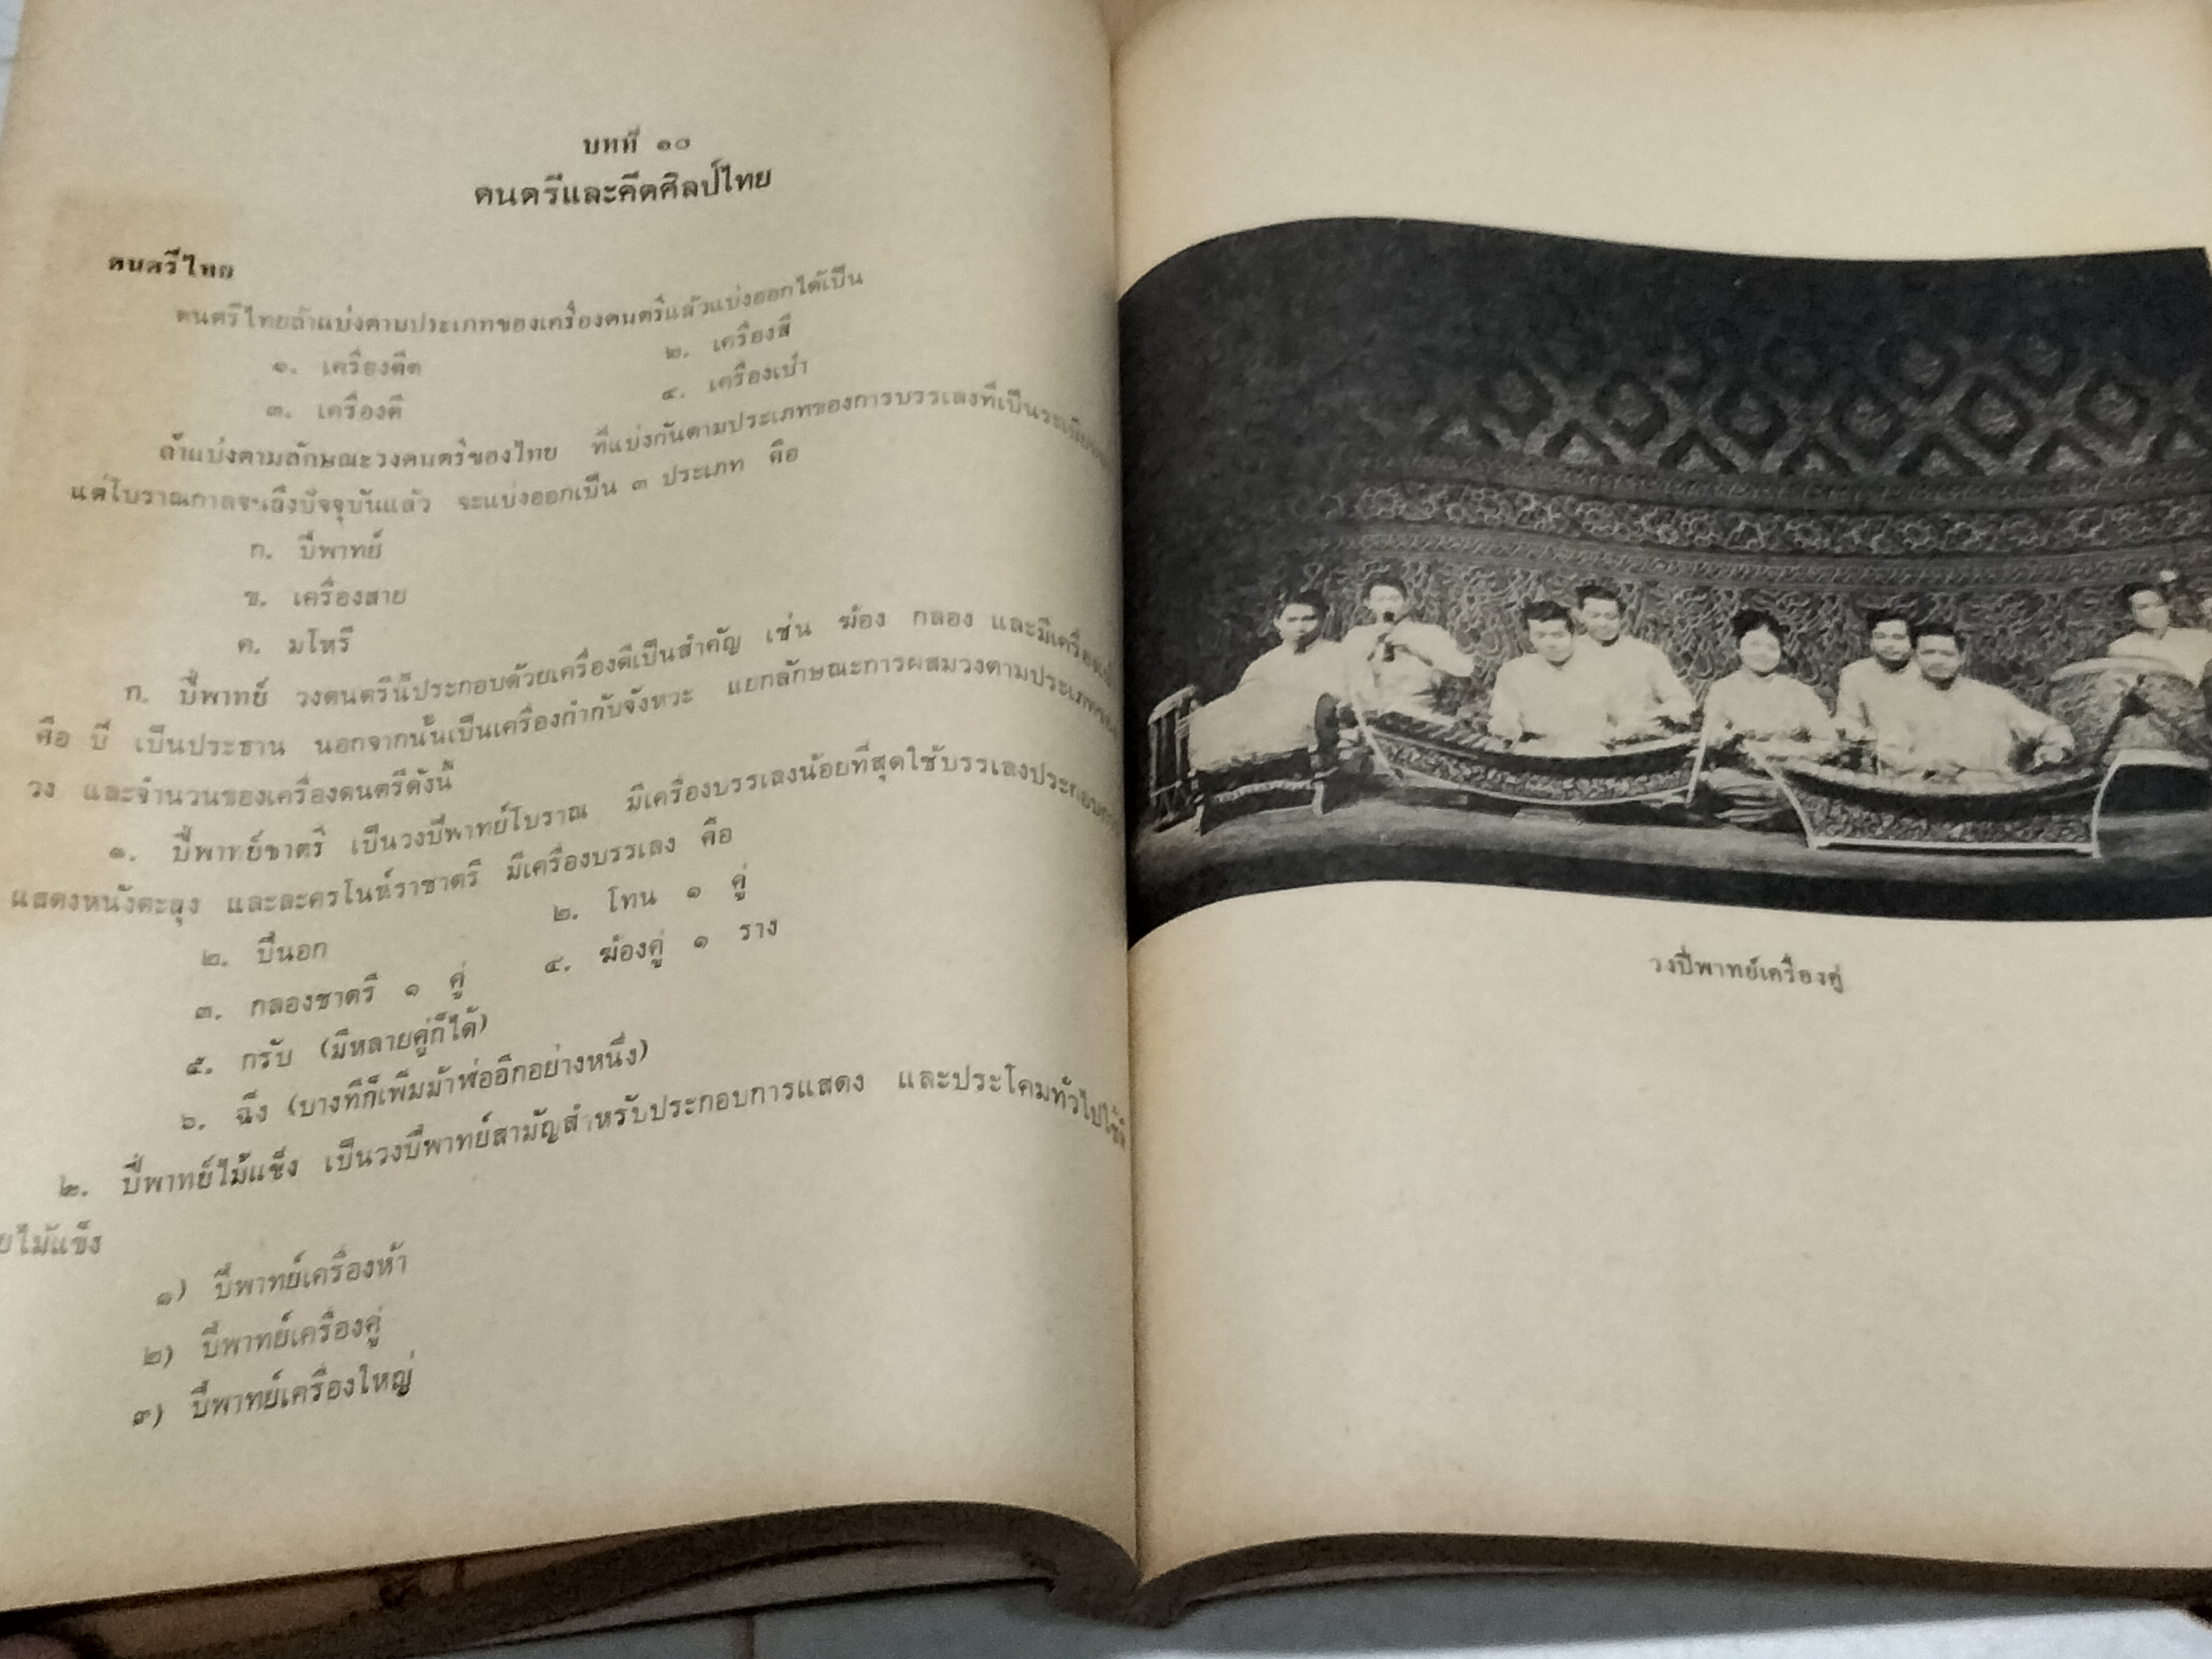 บทที่ ๑๐
ดนตรีและคีตศิลป์ไทย
ดนตรีไทย
ดนตรีไทยถ้าแบ่งตามประเภทของเครื่องดนตรีแล้วแบ่งออกได้เป็น
๑. เครื่องดีด ๒. เครื่องสี
๓. เครื่องตี ๔. เครื่องเป่า
ถ้าแบ่งตามลักษณะวงดนตรีของไทย ที่แบ่งกันตามประเภทของการบรรเลงที่เป็น
แต่โบราณกาลจนถึงปัจจุบันแล้ว จะแบ่งออกเป็น ๓ ประเภท คือ
ก. ปี่พาทย์
ข. เครื่องสาย
ค. มโหรี
ก. ปี่พาทย์ วงดนตรีนี้ประกอบด้วยเครื่องตีเป็นสำคัญ เช่น ฆ้อง กลอง และมี
คือ ปี่ เป็นประธาน นอกจากนั้นเป็นเครื่องกำกับจังหวะ แยกลักษณะการผสมวงตาม
วง และจำนวนของเครื่องดนตรีดังนี้
๑. ปี่พาทย์ชาตรี เป็นวงปี่พาทย์โบราณ มีเครื่องบรรเลงน้อยที่สุดใช้บรรเลงประกอบ
แสดงหนังตะลุง และละครโนห์ราชาตรี มีเครื่องบรรเลง คือ
๒. ปี่นอก ๒. โทน ๑ คู่
๓. กลองชาตรี ๑ คู่ ๔. ฆ้องคู่ ๑ ราง
๕. กรับ (มีหลายคู่ก็ได้)
๖. ฉิ่ง (บางทีก็เพิ่มม้าฬ่ออีกอย่างหนึ่ง)
๒. ปี่พาทย์ไม้แข็ง เป็นวงปี่พาทย์สามัญสำหรับประกอบการแสดง และประโคมทั่วไปใช้
ยไม้แข็ง
๑) ปี่พาทย์เครื่องห้า
๒) ปี่พาทย์เครื่องคู่
๓) ปี่พาทย์เครื่องใหญ่
วงปี่พาทย์เครื่องคู่